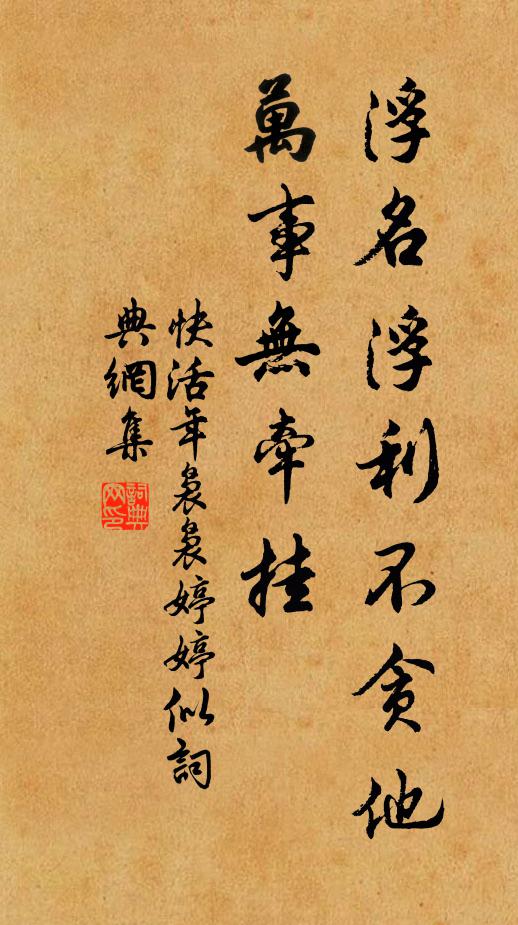 浮名浮利不貪他
萬事無牽挂
快活年裊裊婷婷似詞
典網集
詞典
网印